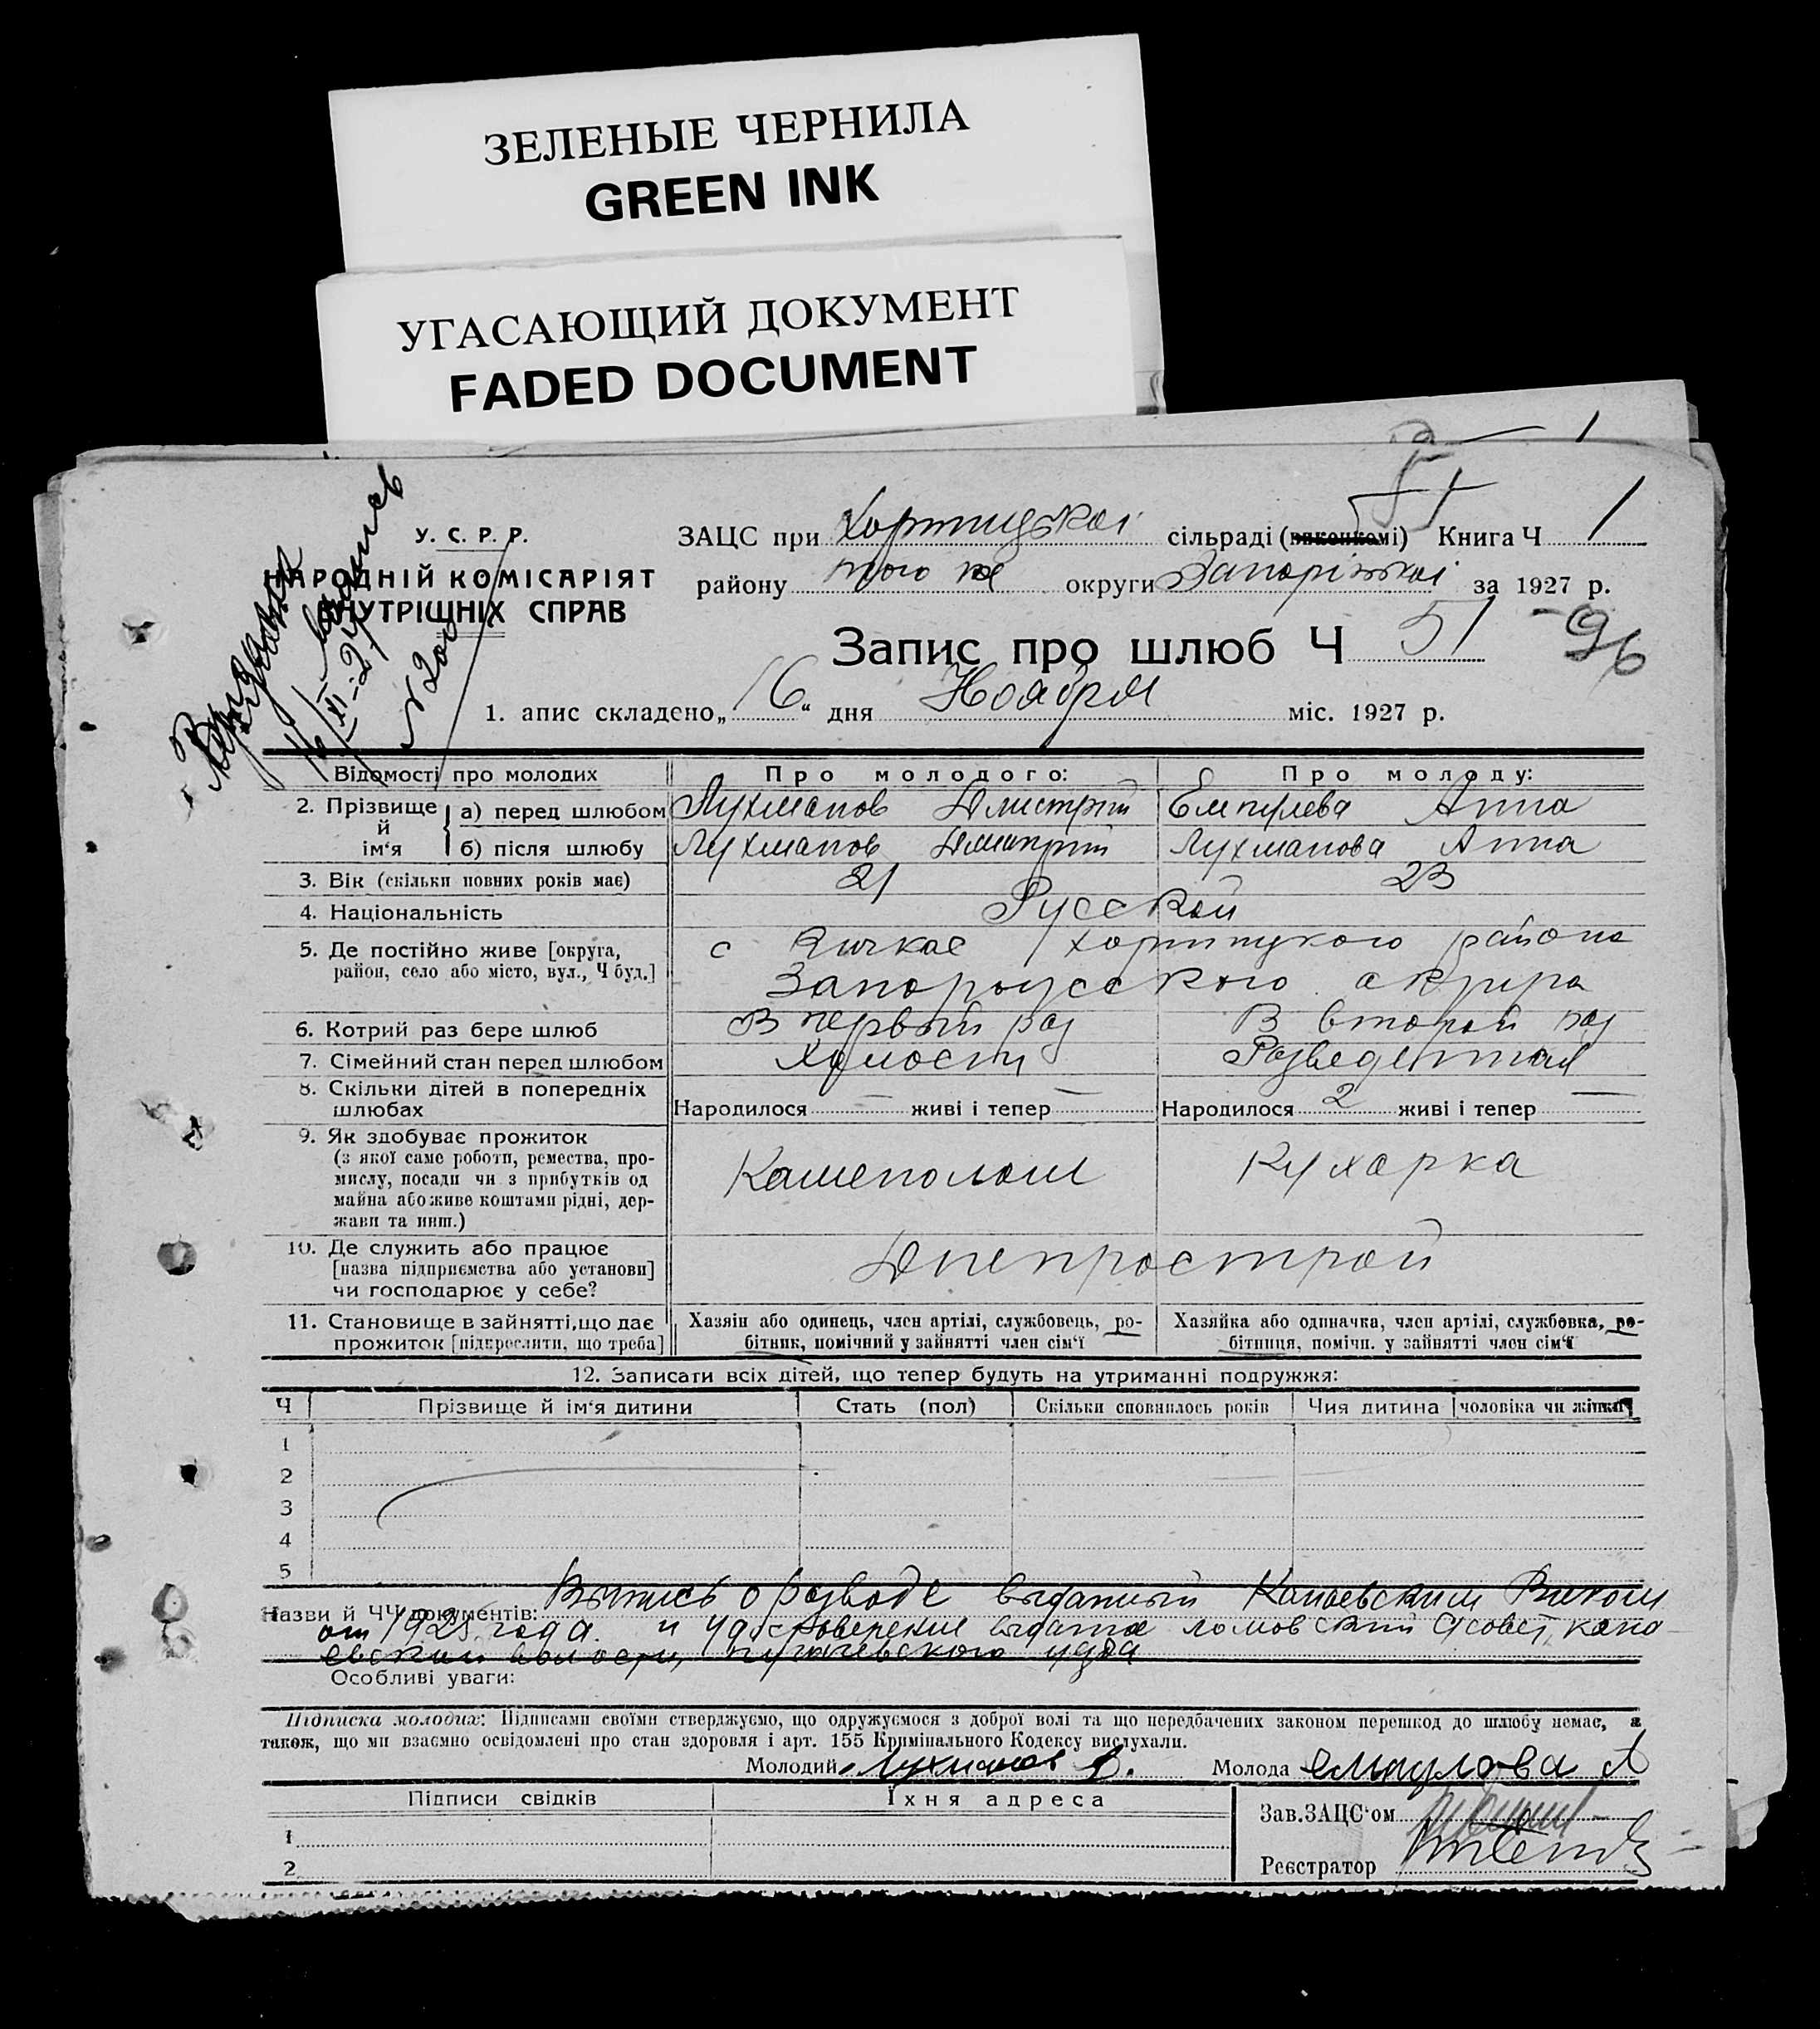 ЗЕЛЕНЫЕ ЧЕРНИЛА
GREEN INK
УГАСАЮЩИЙ ДОКУМЕНТ
FADED DOCUMENT
1
51
У. С. Р. Р.
НАРОДНІЙ КОМІСАРІЯТ
ВНУТРІШНІХ СПРАВ
16/XI-27
N 200
ЗАЦС при Хортицькоі сільраді (виконкомі) Книга Ч 1
району того же округи Запоріжькоі за 1927 р.
Запис про шлюб Ч 51
96
1. апис складено „16“ дня Ноября міс. 1927 р.
Відомості про молодих Про молодого: Про молоду:
2. Прізвище й ім‘я а) перед шлюбом Лухманов Дмитрий Емпулева Анна
б) після шлюбу Лухманов Дмитрий Лухманова Анна
3. Вік (скільки повних років має) 21 23
4. Національність Русской
5. Де постійно живе [округа, район, село або місто, вул., Ч буд.] с Кичкас Хортицкого района
Запорожского округа
6. Котрий раз бере шлюб В первый раз В второй раз
7. Сімейний стан перед шлюбом Холост Разведенная
8. Скільки дітей в попередніх шлюбах Народилося — живі і тепер — Народилося 2 живі і тепер —
9. Як здобуває прожиток
(з якої саме роботи, ремества, про-
мислу, посади чи з прибутків од
майна або живе коштами рідні, дер-
жави та инш.)
Каменолом Кухарка
10. Де служить або працює
[назва підприємства або установи]
чи господарює у себе?
Днепрострой
11. Становище в зайнятті, що дає
прожиток [підкреслити, що треба]
Хазяїн або одинець, член артілі, службовець, ро-
бітник, помічний у зайнятті член сім‘ї
Хазяйка або одиначка, член артілі, службовка, ро-
бітниця, помічн. у зайнятті член сім‘ї
12. Записати всіх дітей, що тепер будуть на утриманні подружжя:
Ч Прізвище й ім‘я дитини Стать (пол) Скільки сповнилось років Чия дитина чоловіка чи жінки
1
2
3
4
5
Назви й ЧЧ документів: Выпись о разводе выданный Канаевским Виком
от 1925 года и удостоверение выдана ломовский С/совет, кана-
евский волости, пугачевского уезда
Особливі уваги:
Підписка молодих: Підписами своїми стверджуємо, що одружуємося з доброї волі та що передбачених законом перешкод до шлюбу немає, а
також, що ми взаємно освідомлені про стан здоровля і арт. 155 Кримінального Кодексу вислухали.
Молодий Лухманов Д. Молода Емпулова А
Підписи свідків Їхня адреса
1
2
Зав.ЗАЦС‘ом
Реєстратор